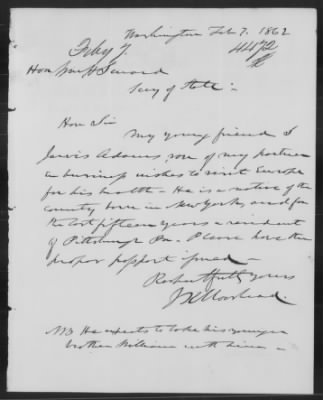 Washington Feb 7. 1862
Feby 7.
4472
Hon Wm H Seward
Secy of State :-
Hon Sir
My young friend J
Jarvis Adams, son of my partner
in business wishes to visit Europe
for his health - He is a native of the
country born in New York, and for
the last fifteen years a resident
of Pittsburgh Pa. Please have the
proper passport issued -
Respectfully yours
J K Moorhead.
NB He expects to take his younger
brother William with him -